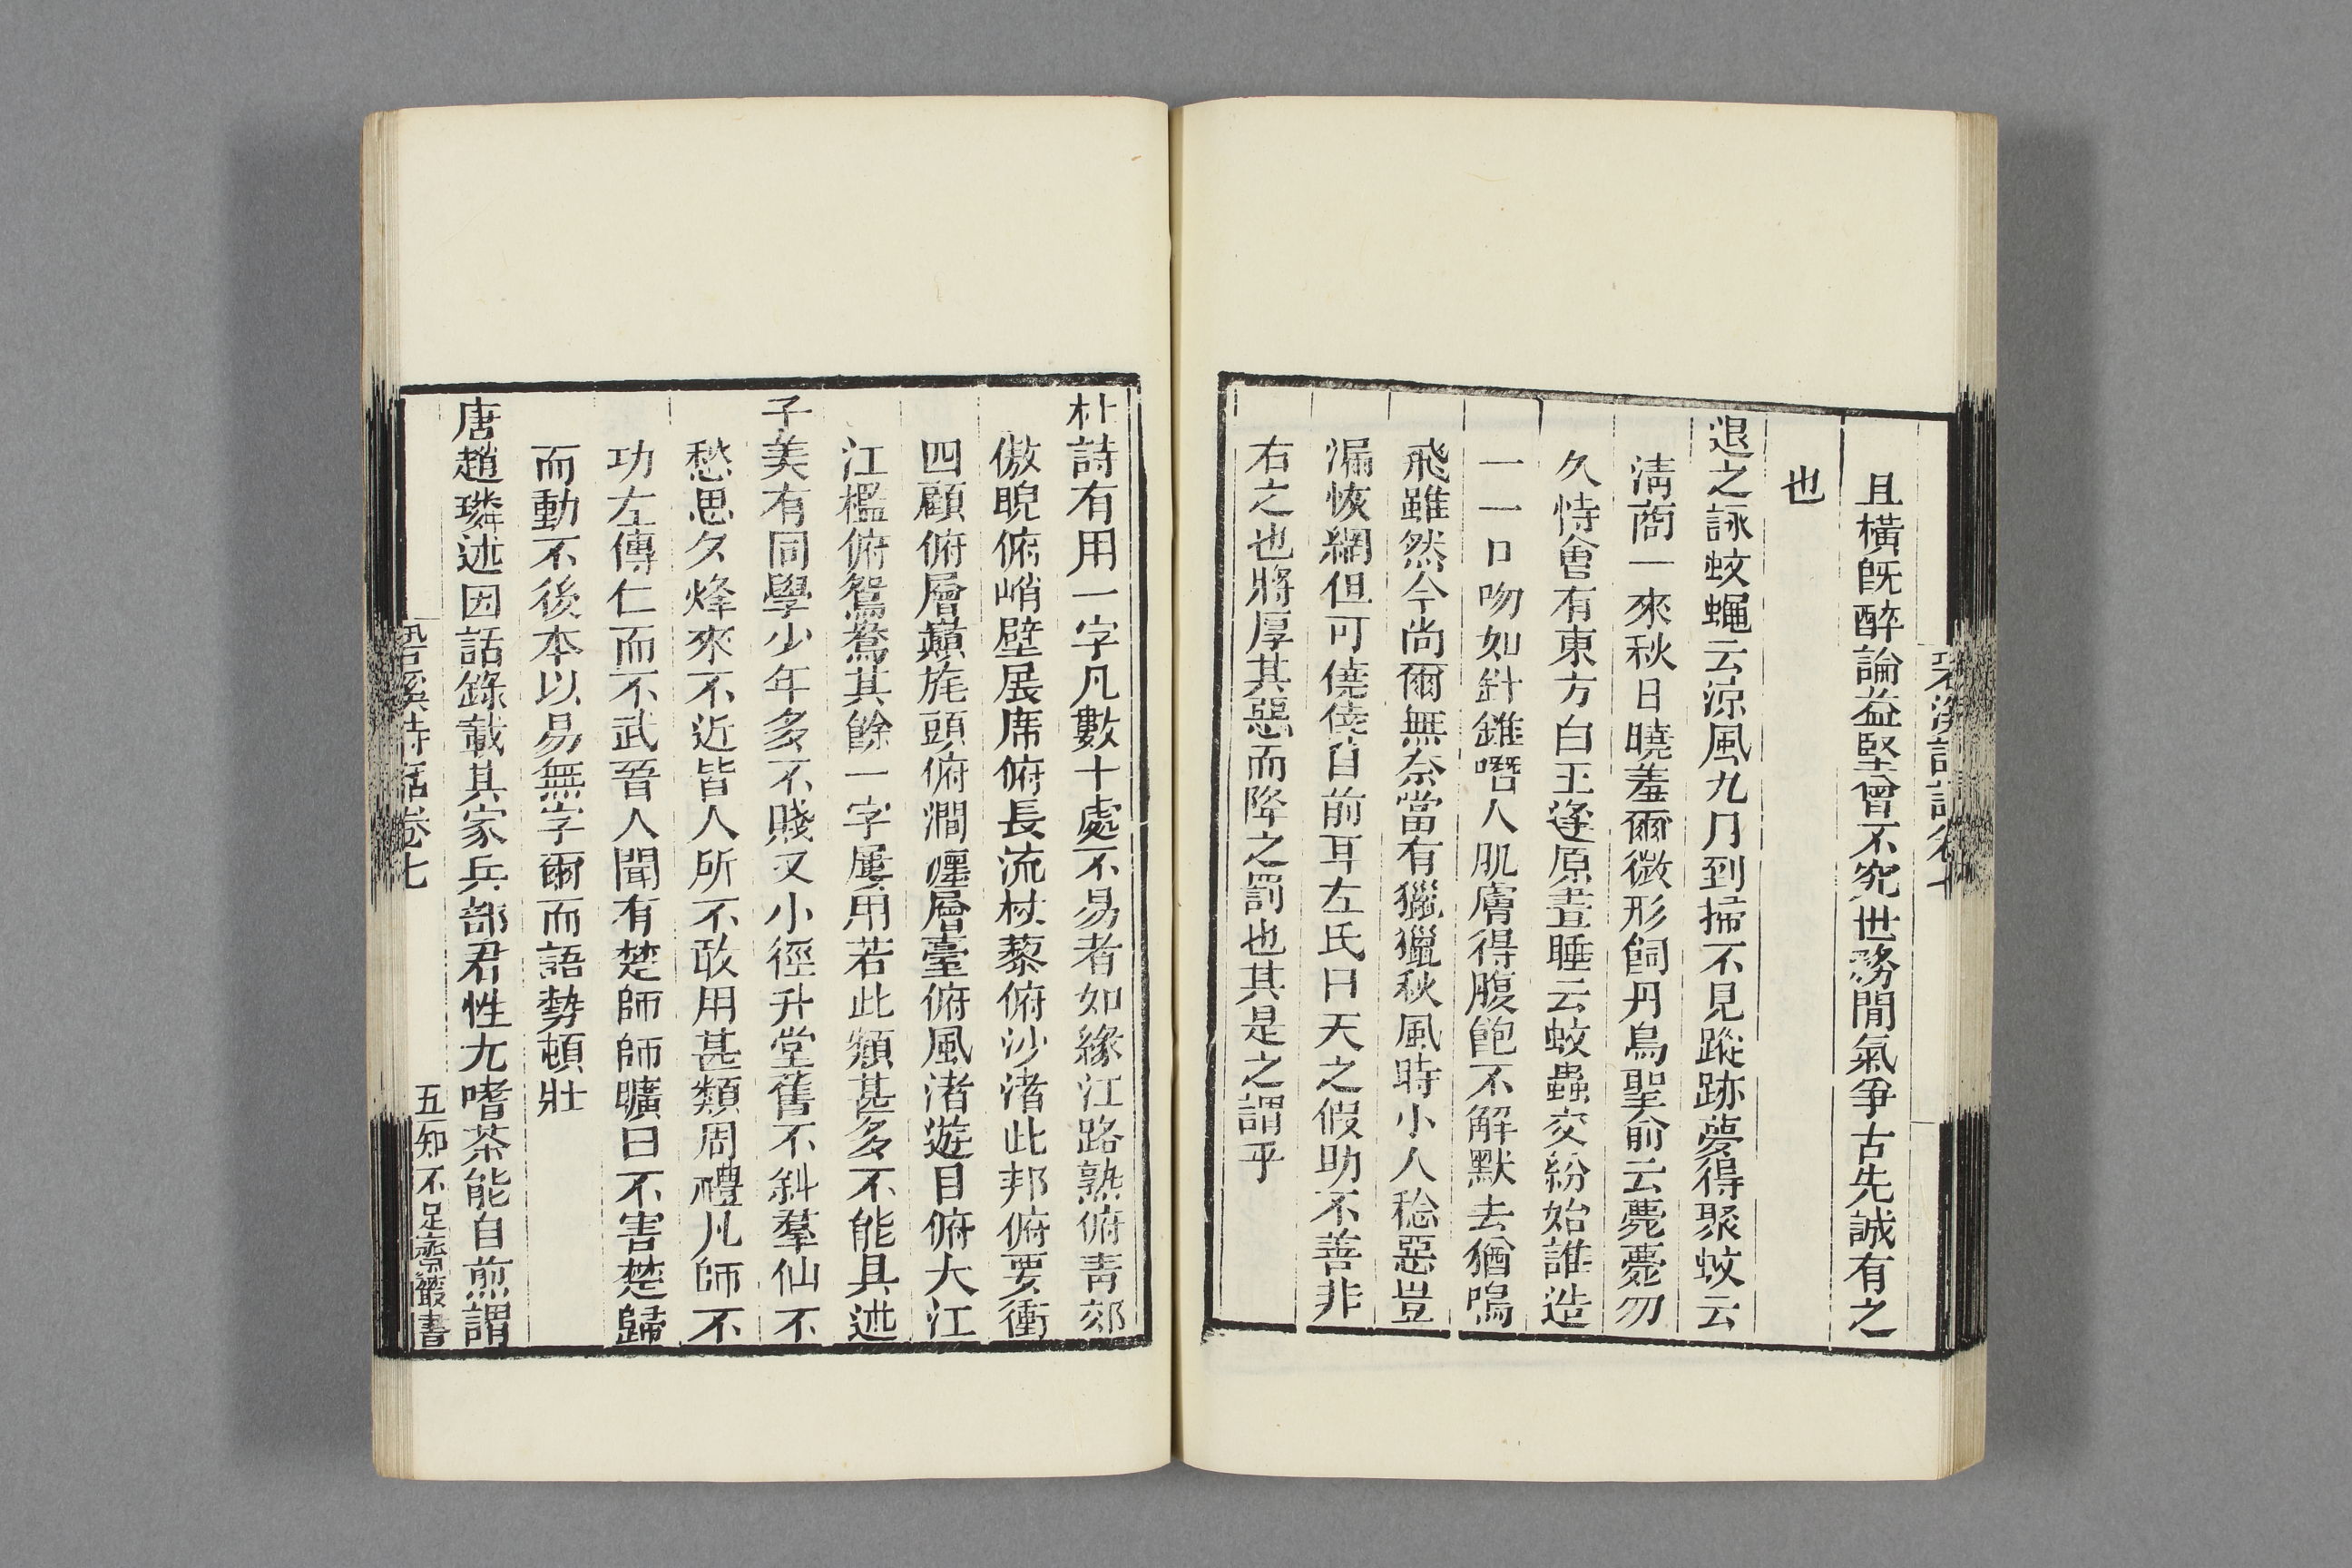 且橫旣醉論益堅曾不究世務閒氣爭古先誠有之
也
退之詠蚊蠅云涼風九月到掃不見蹤跡夢得聚蚊云
淸商一來秋日曉羞爾微形飼丹鳥聖俞云薨薨勿
久恃會有東方白王逢原晝睡云蚊蟲交紛始誰造
一一口吻如針錐噆人肌膚得腹飽不解默去猶鳴
飛雖然今尚爾無奈當有獵獵秋風時小人稔惡豈
漏恢網但可僥倖目前耳左氏曰天之假助不善非
右之也將厚其惡而降之罰也其是之謂乎
杜詩有用一字凡數十處不易者如緣江路熟俯靑郊
傲睨俯峭壁展席俯長流杖藜俯沙渚此邦俯要衝
四顧俯層巔旄頭俯澗瀍層臺俯風渚遊目俯大江
江檻俯鴛鴦其餘一字屢用若此類甚多不能具述
子美有同學少年多不賤又小徑升堂舊不斜羣仙不
愁思久烽來不近皆人所不敢用甚類周禮凡師不
功左傳仁而不武晉人聞有楚師師曠曰不害楚歸
而動不後本以易無字爾而語勢頓壯
唐趙璘述因話錄載其家兵部君性尤嗜茶能自煎謂
䂬溪詩話卷七
五
知不足齋叢書